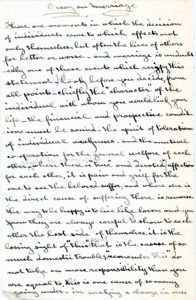 Essay on Marriage
There are moments in which the decision
of individuals come to which affects not
only themselves, but often the lives of others
for better or worse - and marriage is undoubt
edly one of these
should you before you decide from
all points, chiefly the "character" of the
individual with whom you would link your
life - the financial and prospective condit
ions must be sound. The spirit of toleration
of individual weaknesses - and the mutual
co-operation for the general welfare of each
other and devoted affection
for each other, it is pain and grief for the
one to see the beloved suffer, and where one is
the direct cause of suffering there is remorse
The way to be happy is to live like lovers and
your then are always careful to show to each
other the best side of themselves. it is the
losing sight of this that is the cause of so
much domestic trouble, remember this do
not take on more responsibility than you
are equal to, this is one cause of so many
going under - in making a change in